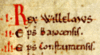 i Rex Willelmus
ii Eps baiocensis.
iii Eps constantiensis.